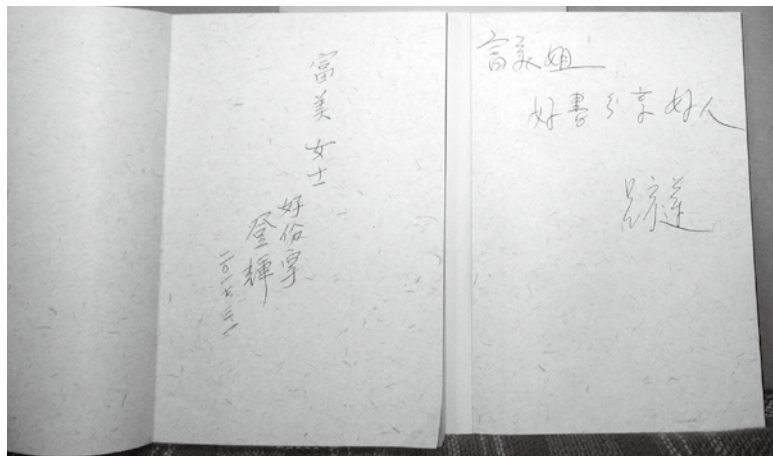 富美女士
好份字
登輝
二〇一七.三.一
富美姐
好書分享好人